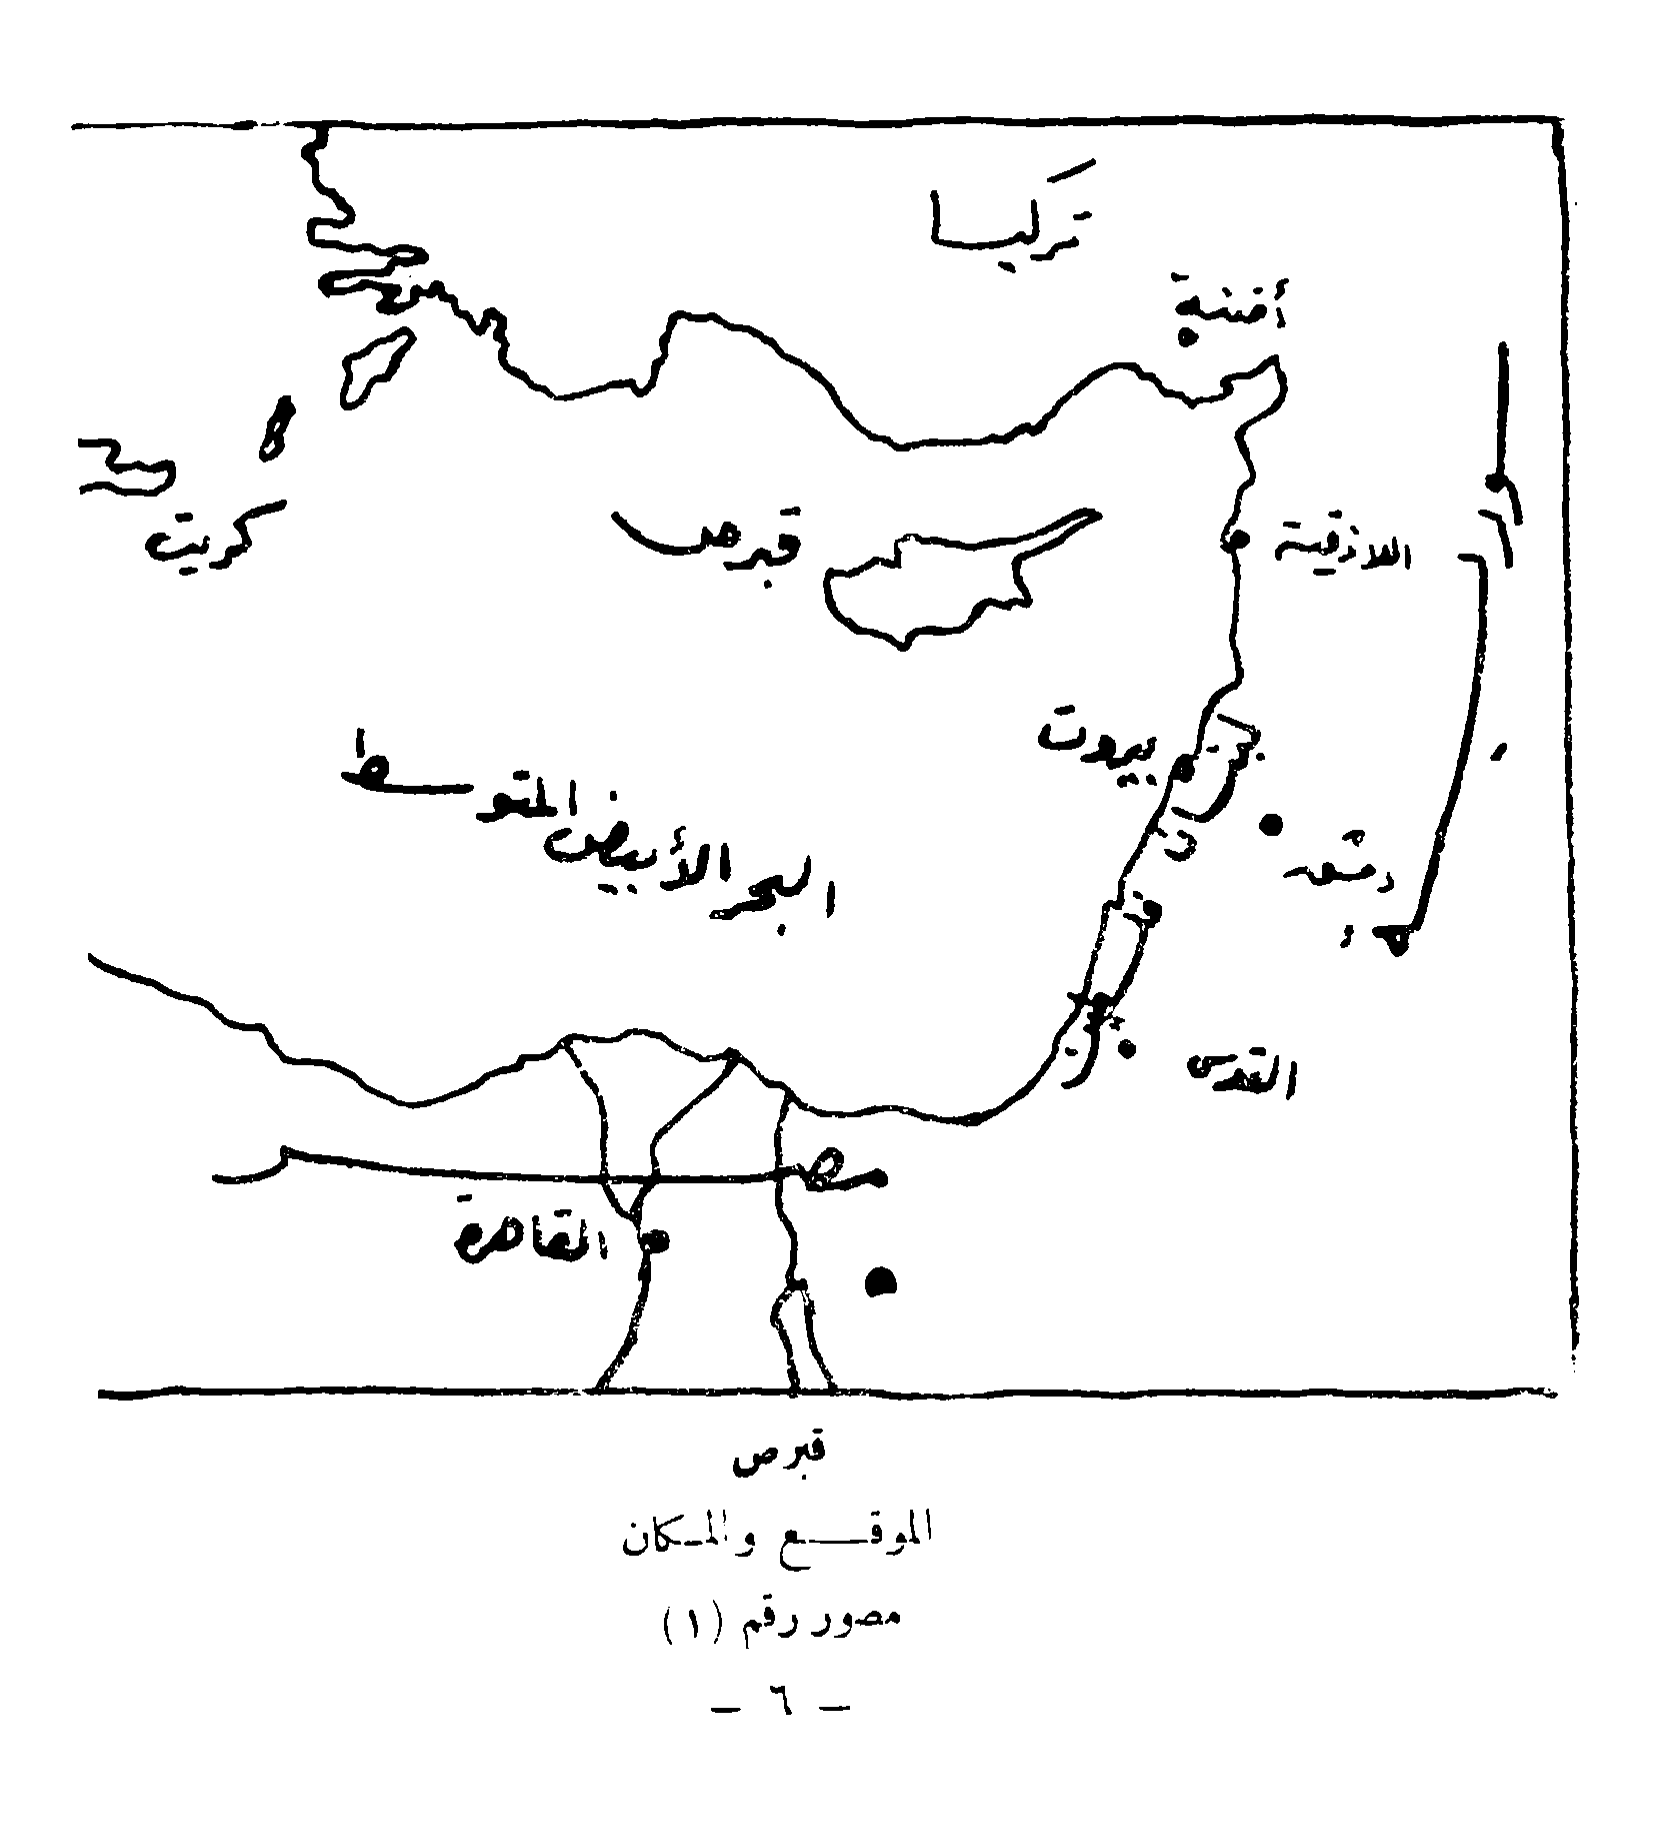 تركيا
أضنة
كريت
قبرص
اللاذقية
بيروت
البحر الأبيض المتوسط
دمشق
القدس
مصر
القاهرة
قبرص
الموقـــع والمـكان
مصور رقم (١)
– ٦ –